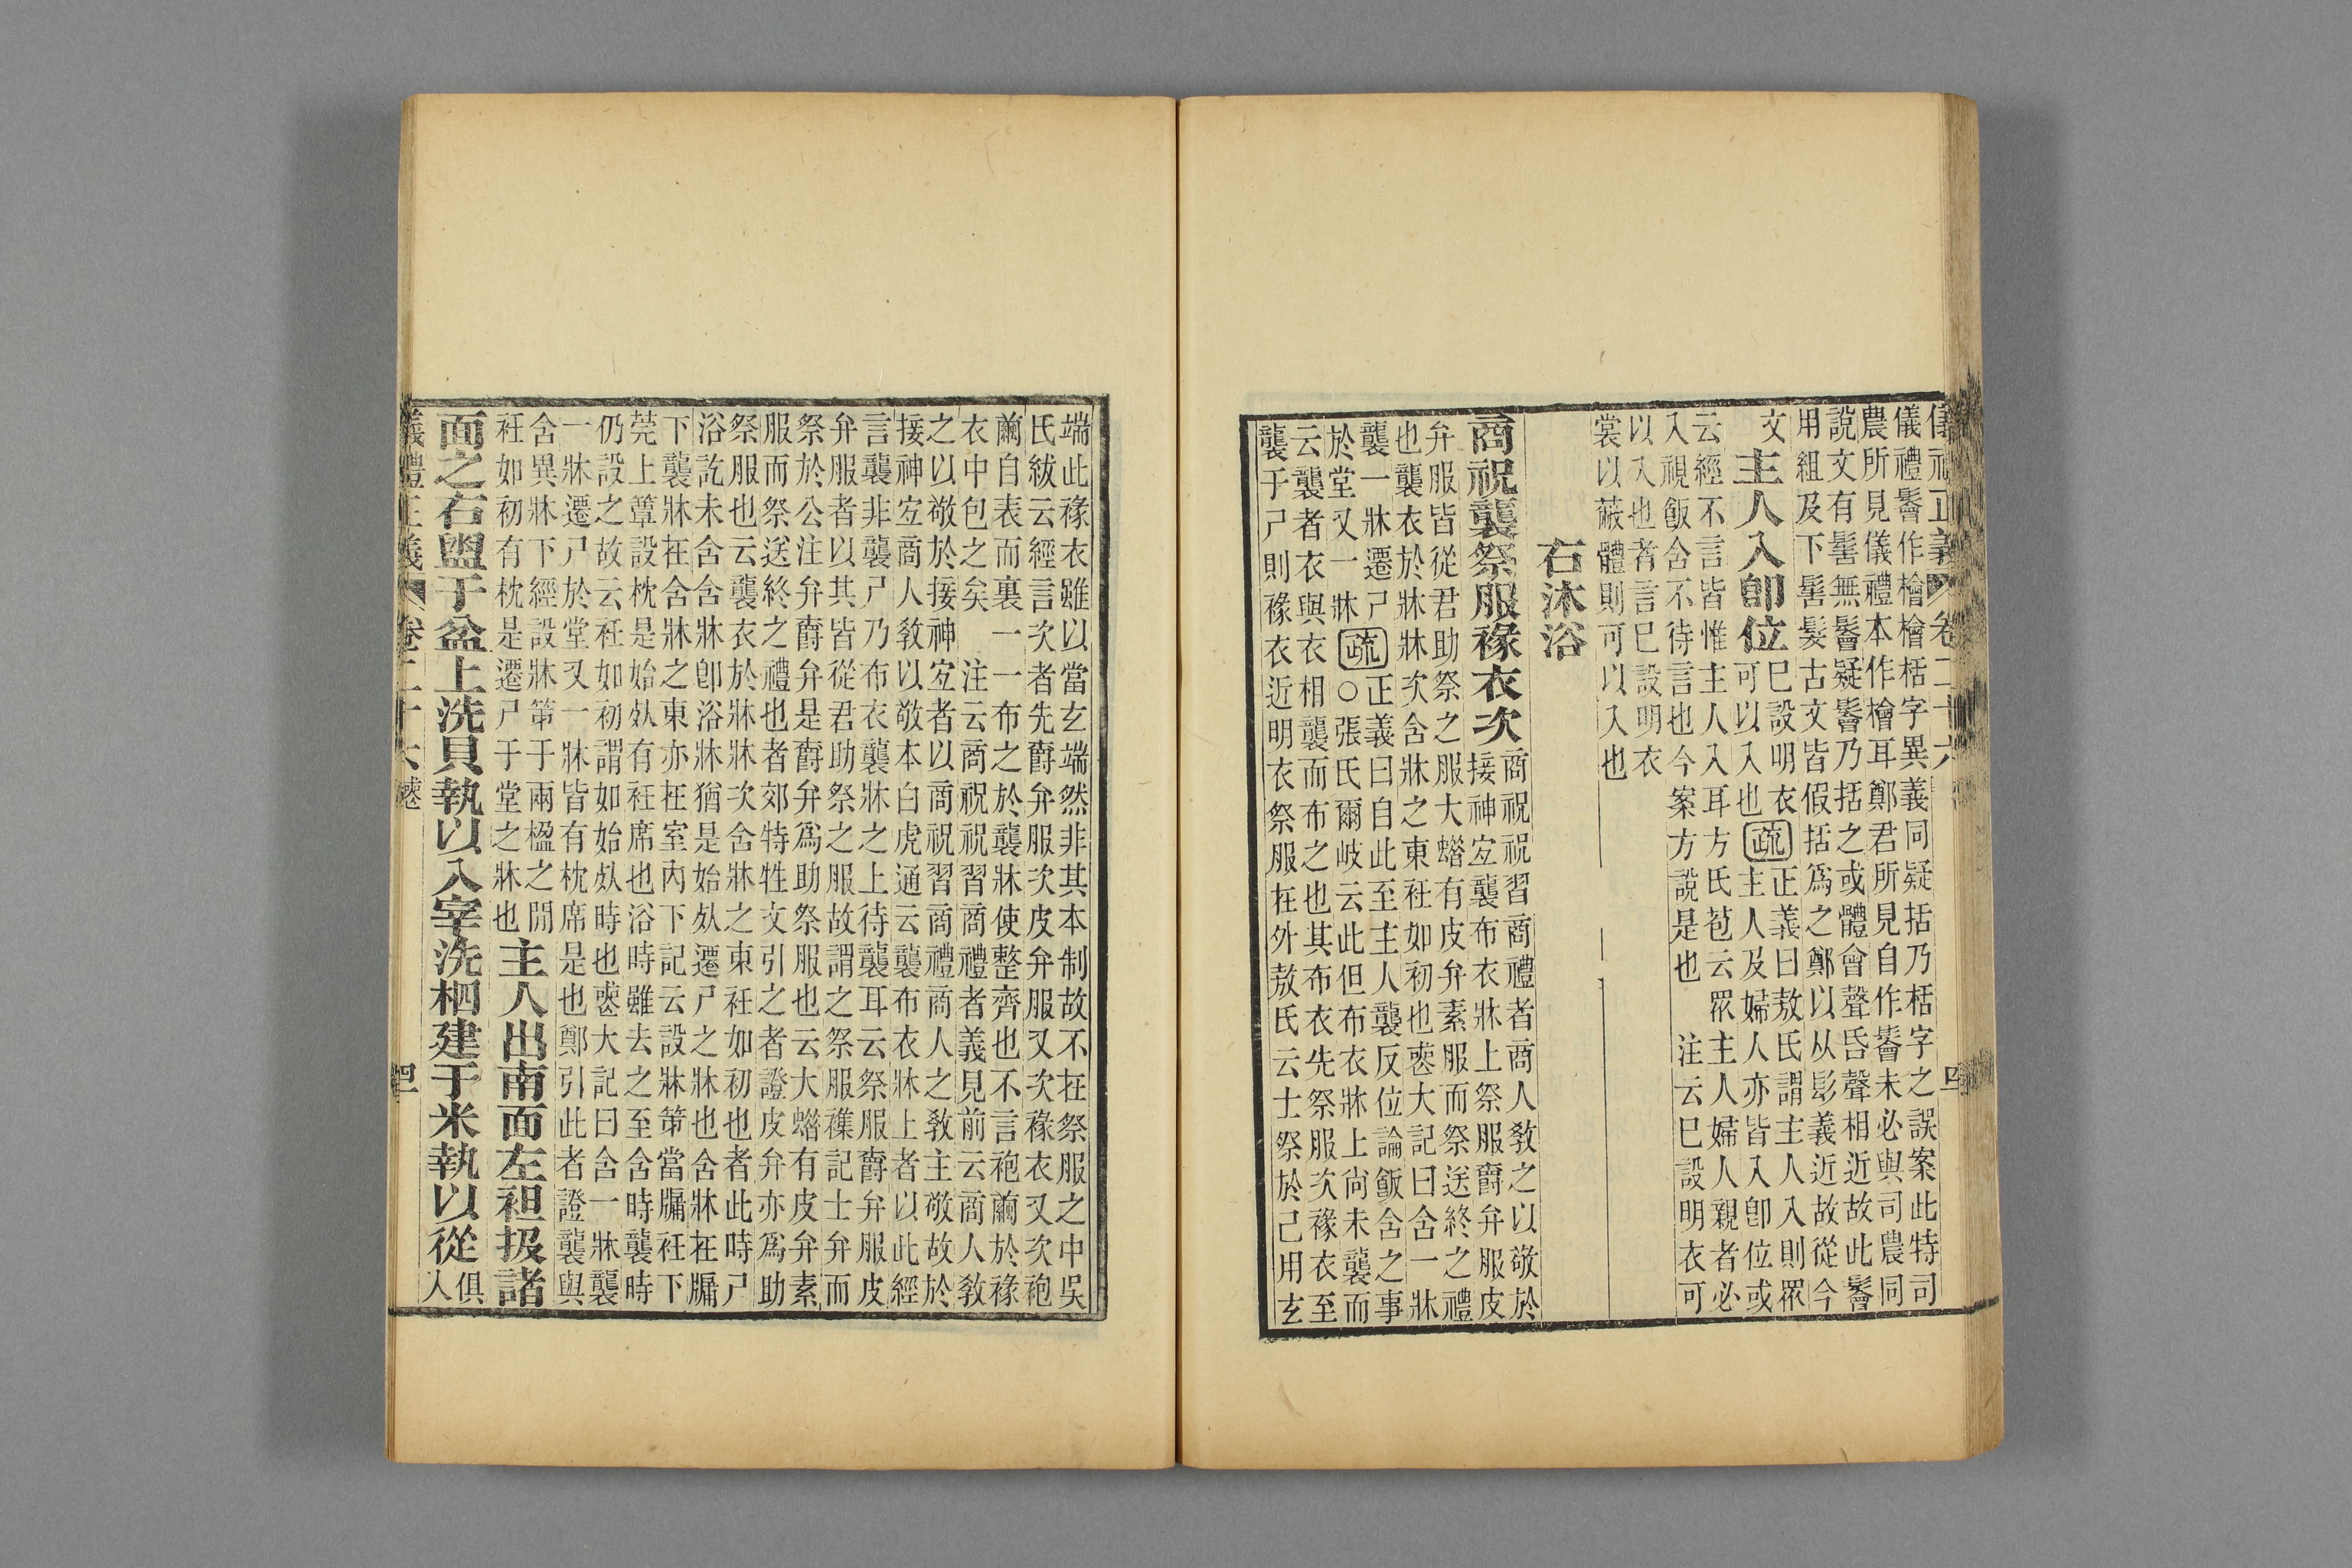 儀禮正義 卷二十六 四
儀禮鬠作檜檜栝字異義同疑括乃栝字之誤案此特司
農所見儀禮本作檜耳鄭君所見自作鬠未必與司農同
說文有髺無鬠疑鬠乃括之或體會聲昏聲相近故此鬠
用組及下髺髮古文皆假括爲之鄭以从髟義近故從今
文
主人入卽位
巳設明衣可以入也
疏
正義曰敖氏謂主人入則眾主人及婦人亦皆入卽位或
云經不言皆惟主人入耳方氏苞云眾主人婦人親者必
入視飯含不待言也今案方說是也 注云巳設明衣可
以入也者言巳設明衣
裳以蔽體則可以入也
右沐浴
商祝襲祭服褖衣次
商祝祝習商禮者商人敎之以敬於
接神宐襲布衣牀上祭服爵弁服皮
弁服皆從君助祭之服大蜡有皮弁素服而祭送終之禮
也襲衣於牀牀次含牀之東衽如初也喪大記曰含一牀
襲一牀遷尸
於堂又一牀
疏
正義曰自此至主人襲反位論飯含之事
○張氏爾岐云此但布衣牀上尚未襲而
云襲者衣與衣相襲而布之也其布衣先祭服次褖衣至
襲于尸則褖衣近明衣祭服在外敖氏云士祭於己用玄
端此褖衣雖以當玄端然非其本制故不在祭服之中吳
氏紱云經言次者先爵弁服次皮弁服又次褖衣又次袍
繭自表而裏一一布之於襲牀使整齊也不言袍繭於褖
衣中包之矣 注云商祝祝習商禮者義見前云商人敎
之以敬於接神宐者以商祝習商禮商人之敎主敬故於
接神宐商人敎以敬本白虎通云襲布衣牀上者以此經
言襲非襲尸乃布衣襲牀之上待襲耳云祭服爵弁服皮
弁服者以其皆從君助祭之服故謂之祭服襍記士弁而
祭於公注弁爵弁是爵弁爲助祭服也云大蜡有皮弁素
服而祭送終之禮也者郊特牲文引之者證皮弁亦爲助
祭服也云襲衣於牀牀次含牀之東衽如初也者此時尸
浴訖未含含牀卽浴牀猶是始𣦸遷尸之牀也含牀在牖
下襲牀在含牀之東亦在室內下記云設牀笫當牖衽下
莞上簟設枕是始𣦸有衽席也浴時雖去之至含時襲時
仍設之故云衽如初謂如始𣦸時也喪大記曰含一牀襲
一牀遷尸於堂又一牀皆有枕席是也鄭引此者證襲與
含異牀下經設牀笫于兩楹之閒
衽如初有枕是遷尸于堂之牀也
主人出南面左袒扱諸
面之右盥于盆上洗貝執以入宰洗柶建于米執以從
俱人
儀禮正義 卷二十六 喪 四